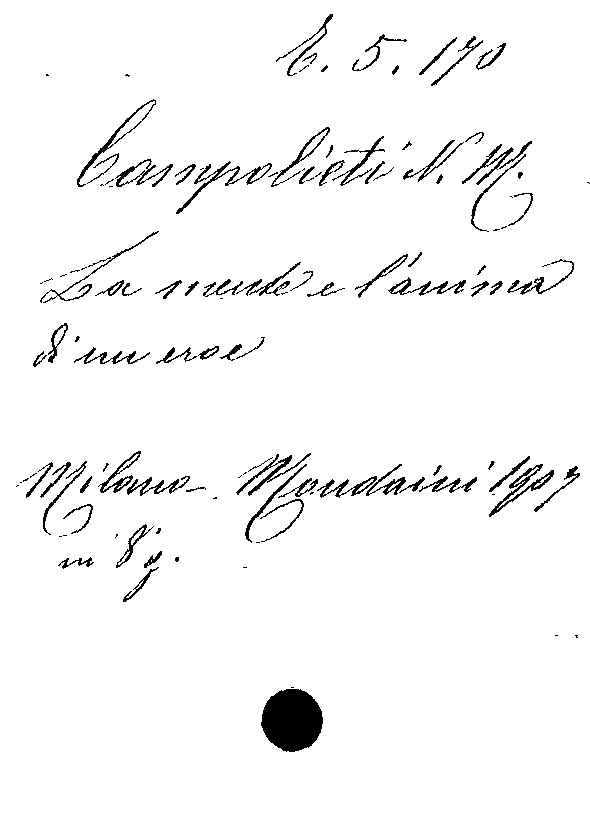 E. 5. 170
Campolieti N. M.
La mente e l'anima
di un eroe
Milano - Mondaini 1907
in 8° g.